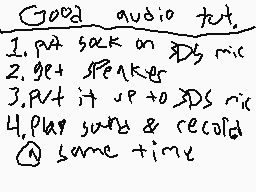 Good audio tut.
1. put sock on 3DS mic
2. get speaker
3. put it up to 3DS mic
4. Play sound & record
@ same time